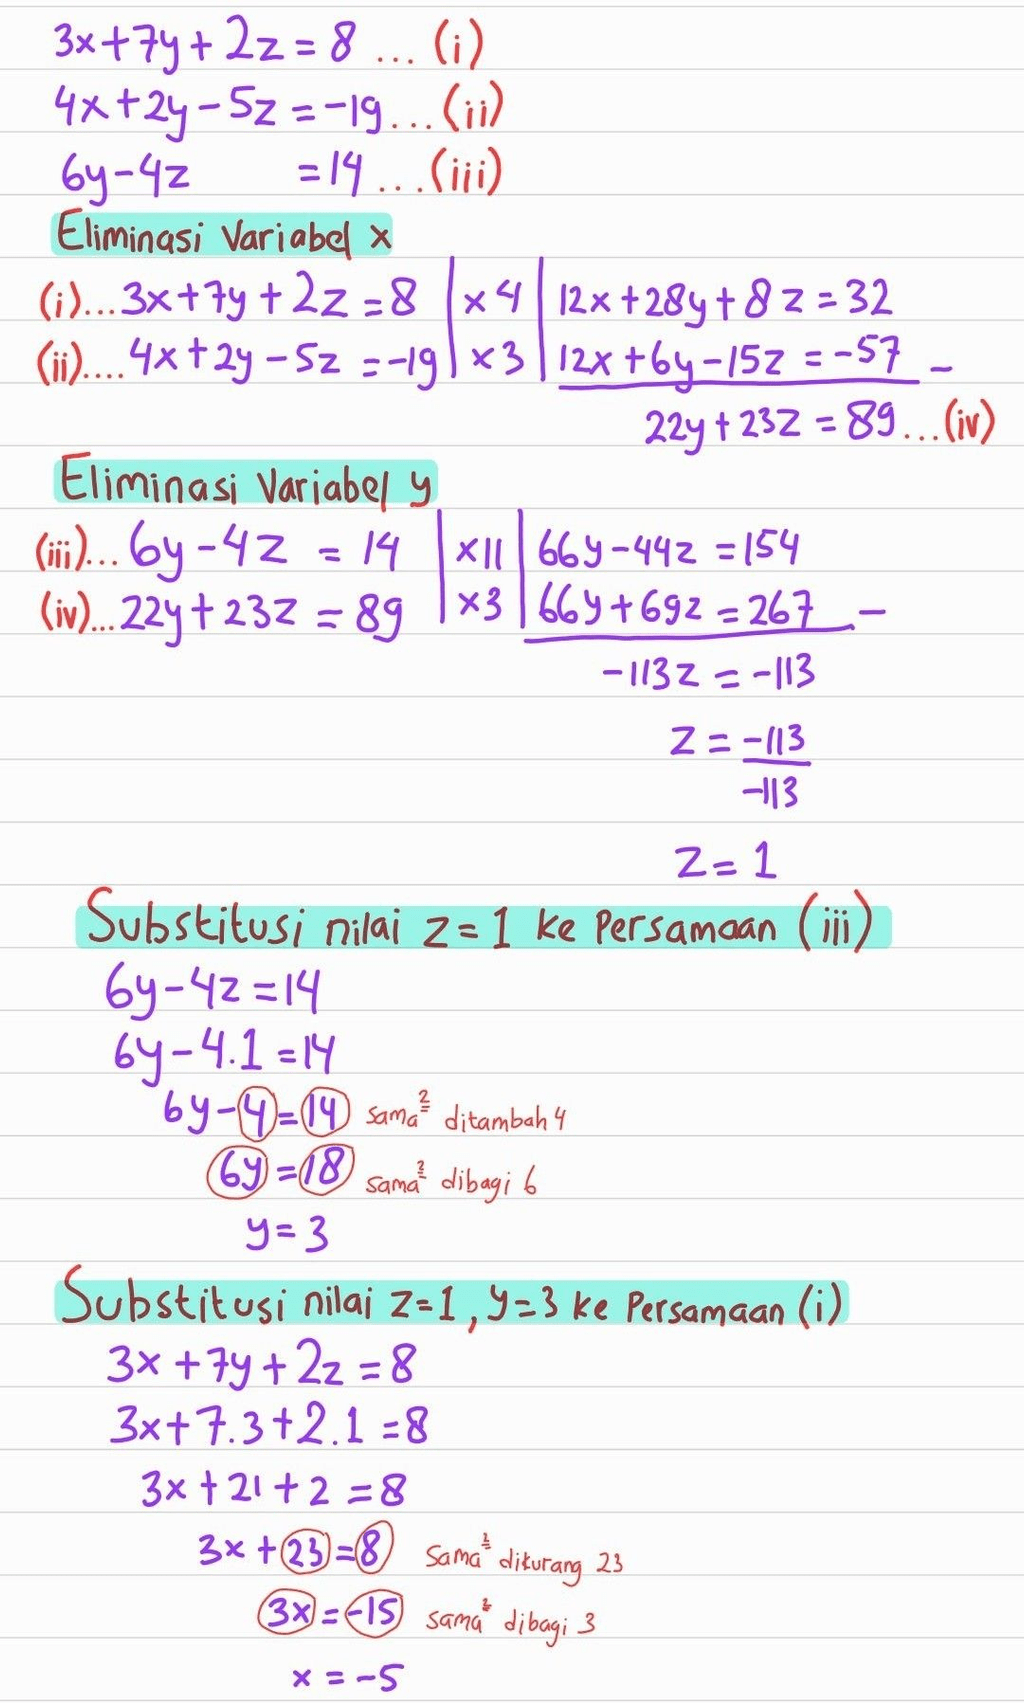 3x+7y+2z=8 ... (i)
4x+2y-5z=-19... (ii)
6y-4z =14 ... (iii)
Eliminasi Variabel x
(i)...3x+7y+2z=8 | x4 | 12x+28y+8z=32
(ii)....4x+2y-5z=-19 | x3 | 12x+6y-15z=-57 -
22y+23z=89...(iv)
Eliminasi Variabel y
(iii)...6y-4z = 14 | x11 | 66y-44z=154
(iv)...22y+23z=89 | x3 | 66y+69z=267 -
-113z=-113
z=-113
-113
z=1
Substitusi nilai z=1 ke Persamaan (iii)
6y-4z=14
6y-4.1=14
6y-4=14 sama² ditambah 4
6y=18 sama² dibagi 6
y=3
Substitusi nilai z=1, y=3 ke Persamaan (i)
3x+7y+2z=8
3x+7.3+2.1=8
3x+21+2=8
3x+23=8 sama² dikurang 23
3x=-15 sama² dibagi 3
x=-5